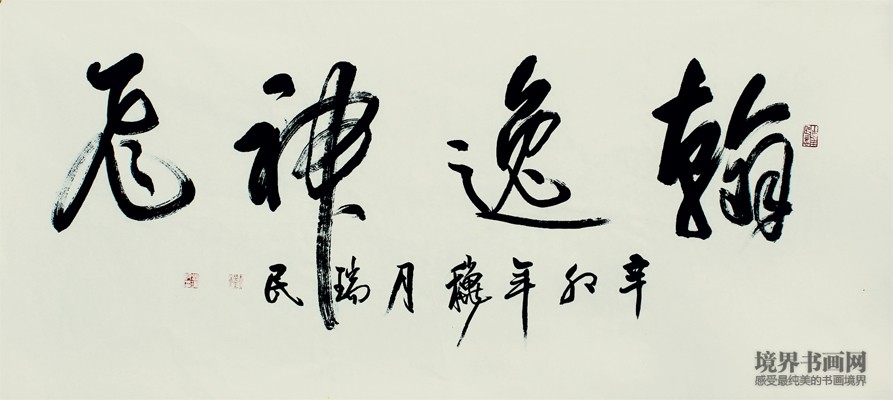 翰逸神飛
辛卯年穐月瑞民
境界书画网
感受最纯美的书画境界